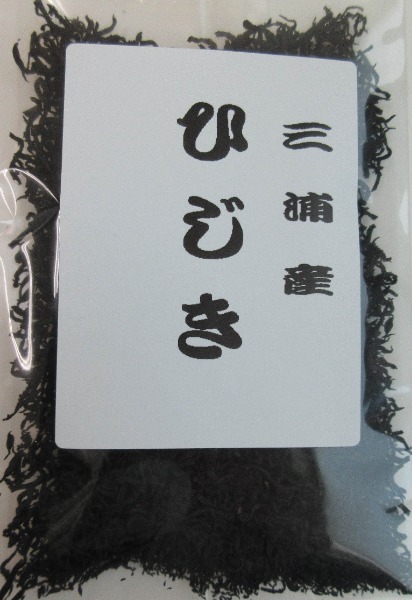 三浦産
ひじき